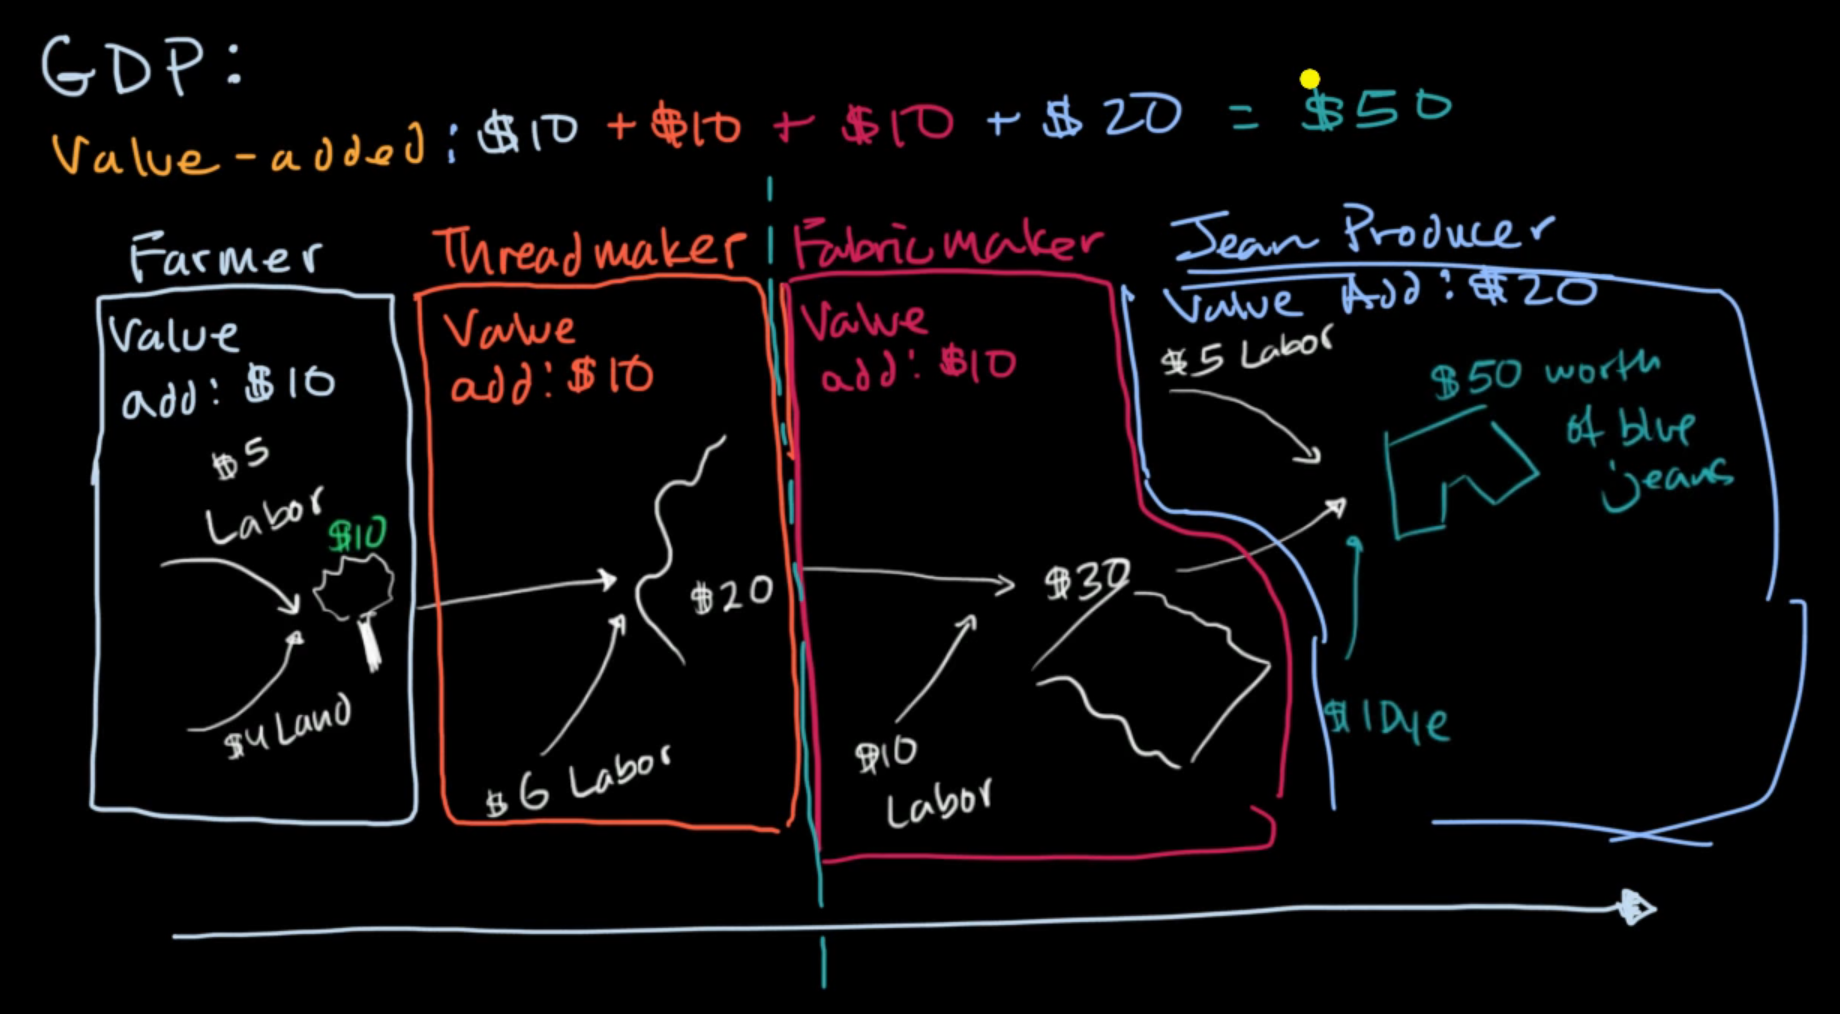 GDP:
Value-added: $10 + $10 + $10 + $20 = $50
Farmer
Value
add: $10
$5
Labor
$10
$4 Land
Thread maker
Value
add: $10
$20
$6 Labor
Fabric maker
Value
add: $10
$30
$10
Labor
Jean Producer
Value Add: $20
$5 Labor
$50 worth
of blue
jeans
$1 Dye